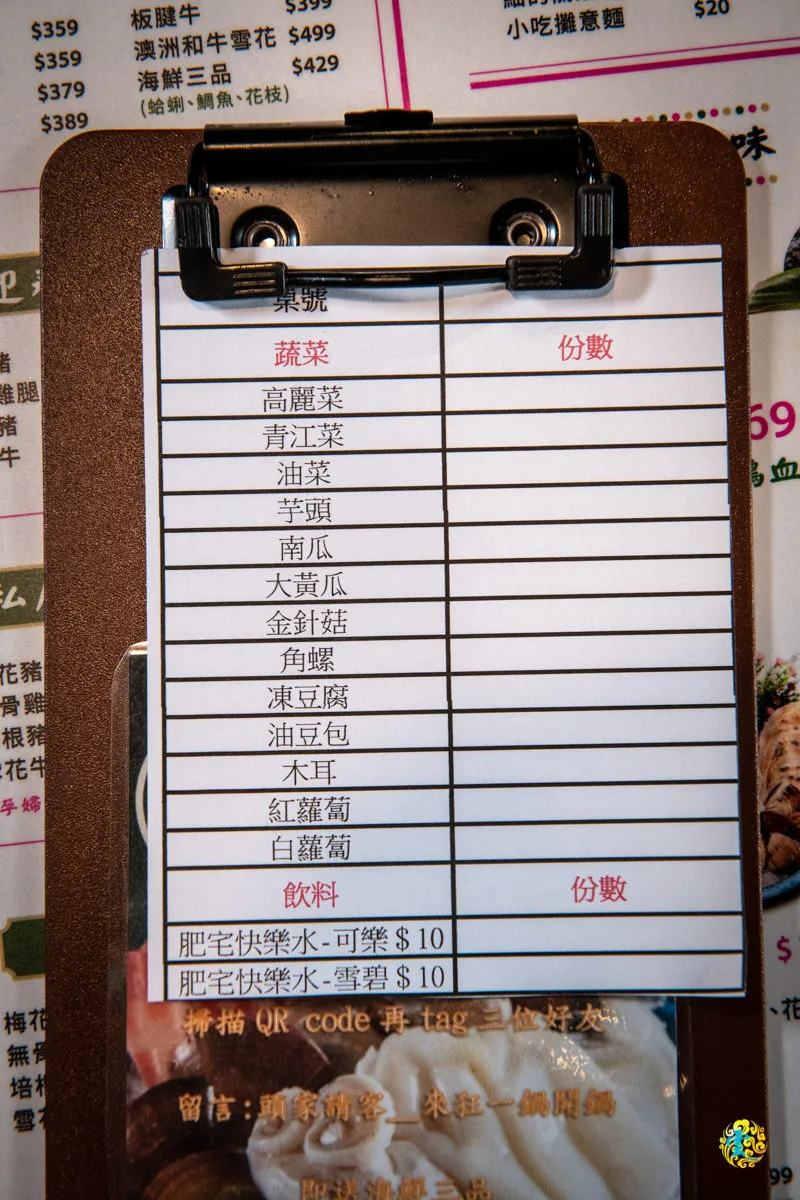 $359
$359
$379
$389
板腱牛 $399
澳洲和牛雪花 $499
海鮮三品 $429
(蛤蜊、鯛魚、花枝)
小吃攤意麵 $20
味
桌號
蔬菜 份數
高麗菜
青江菜
油菜
芋頭
南瓜
大黃瓜
金針菇
角螺
凍豆腐
油豆包
木耳
紅蘿蔔
白蘿蔔
飲料 份數
肥宅快樂水-可樂$10
肥宅快樂水-雪碧$10
掃描QR code再tag三位好友
留言:頭家請客__來狂一鍋開鍋
即送海鮮三品
豬
雞腿
豬
牛
花豬
骨雞
根豬
花牛
孕婦
梅花
無骨
培根
雪花
69
血
$
、花
99